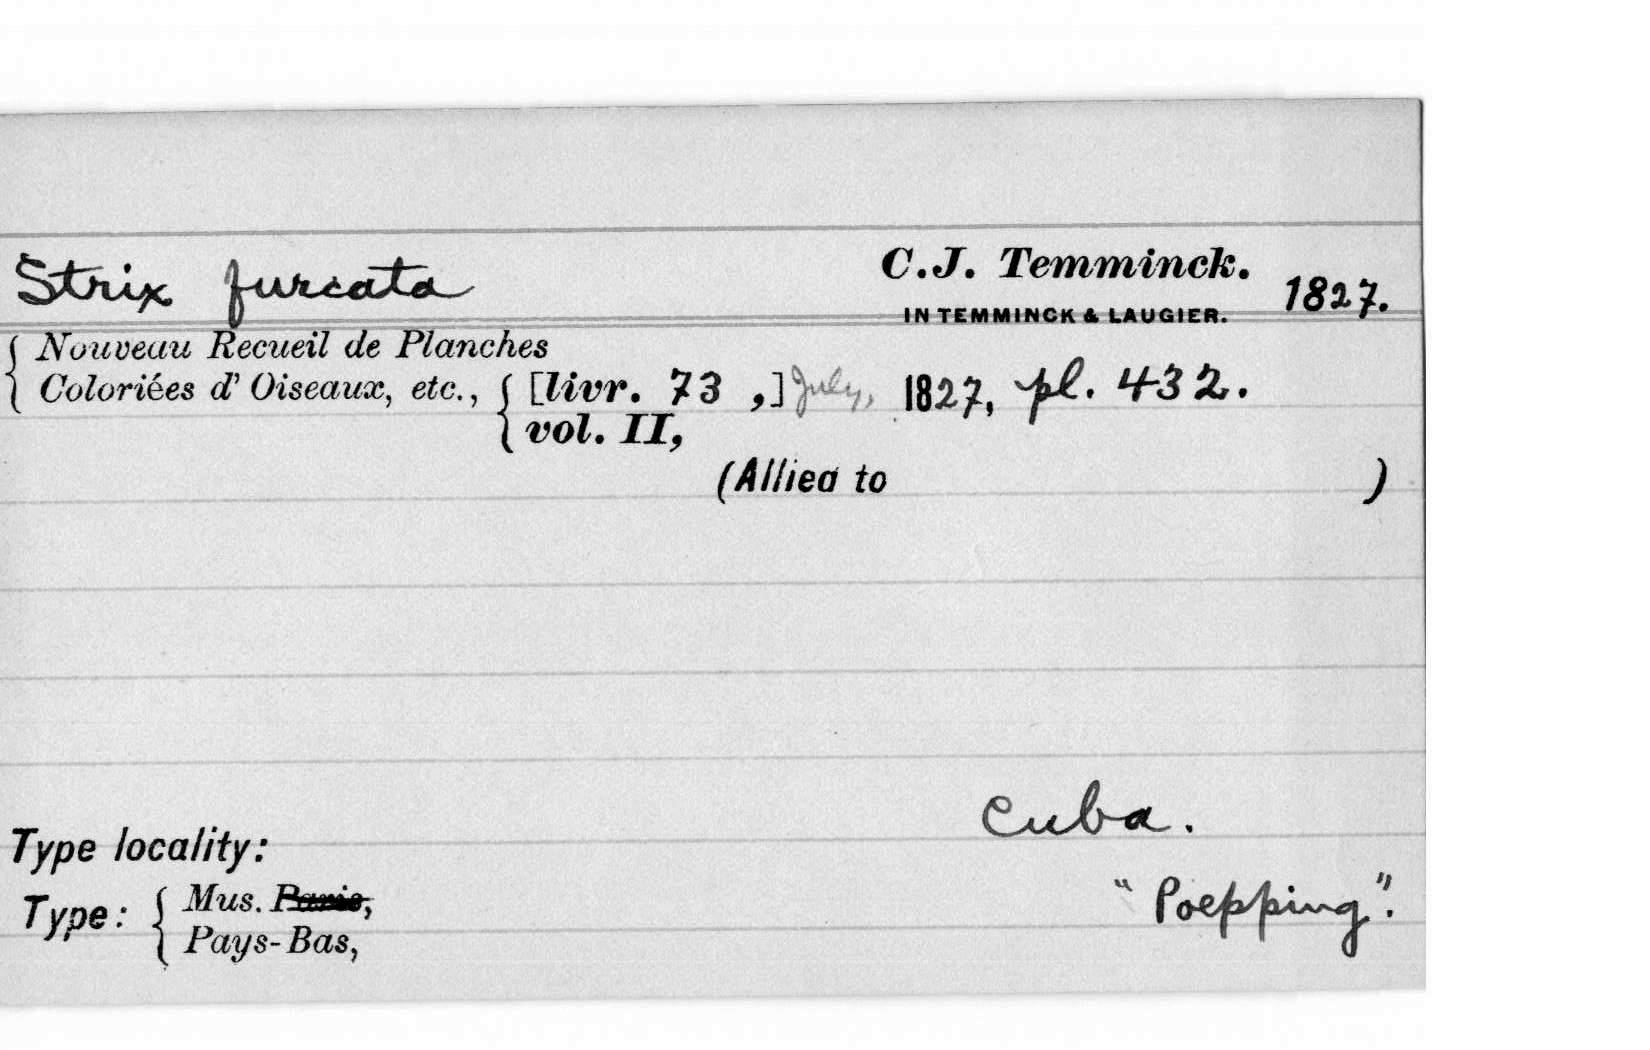 Strix furcata C.J. Temminck. 1827.
IN TEMMINCK & LAUGIER.
Nouveau Recueil de Planches
Coloriées d' Oiseaux, etc., [livr. 73 ,] July, 1827, pl. 432.
vol. II,
(Allied to )
Cuba.
Type locality:
Type: Mus. Paris, "Poepping".
Pays-Bas,